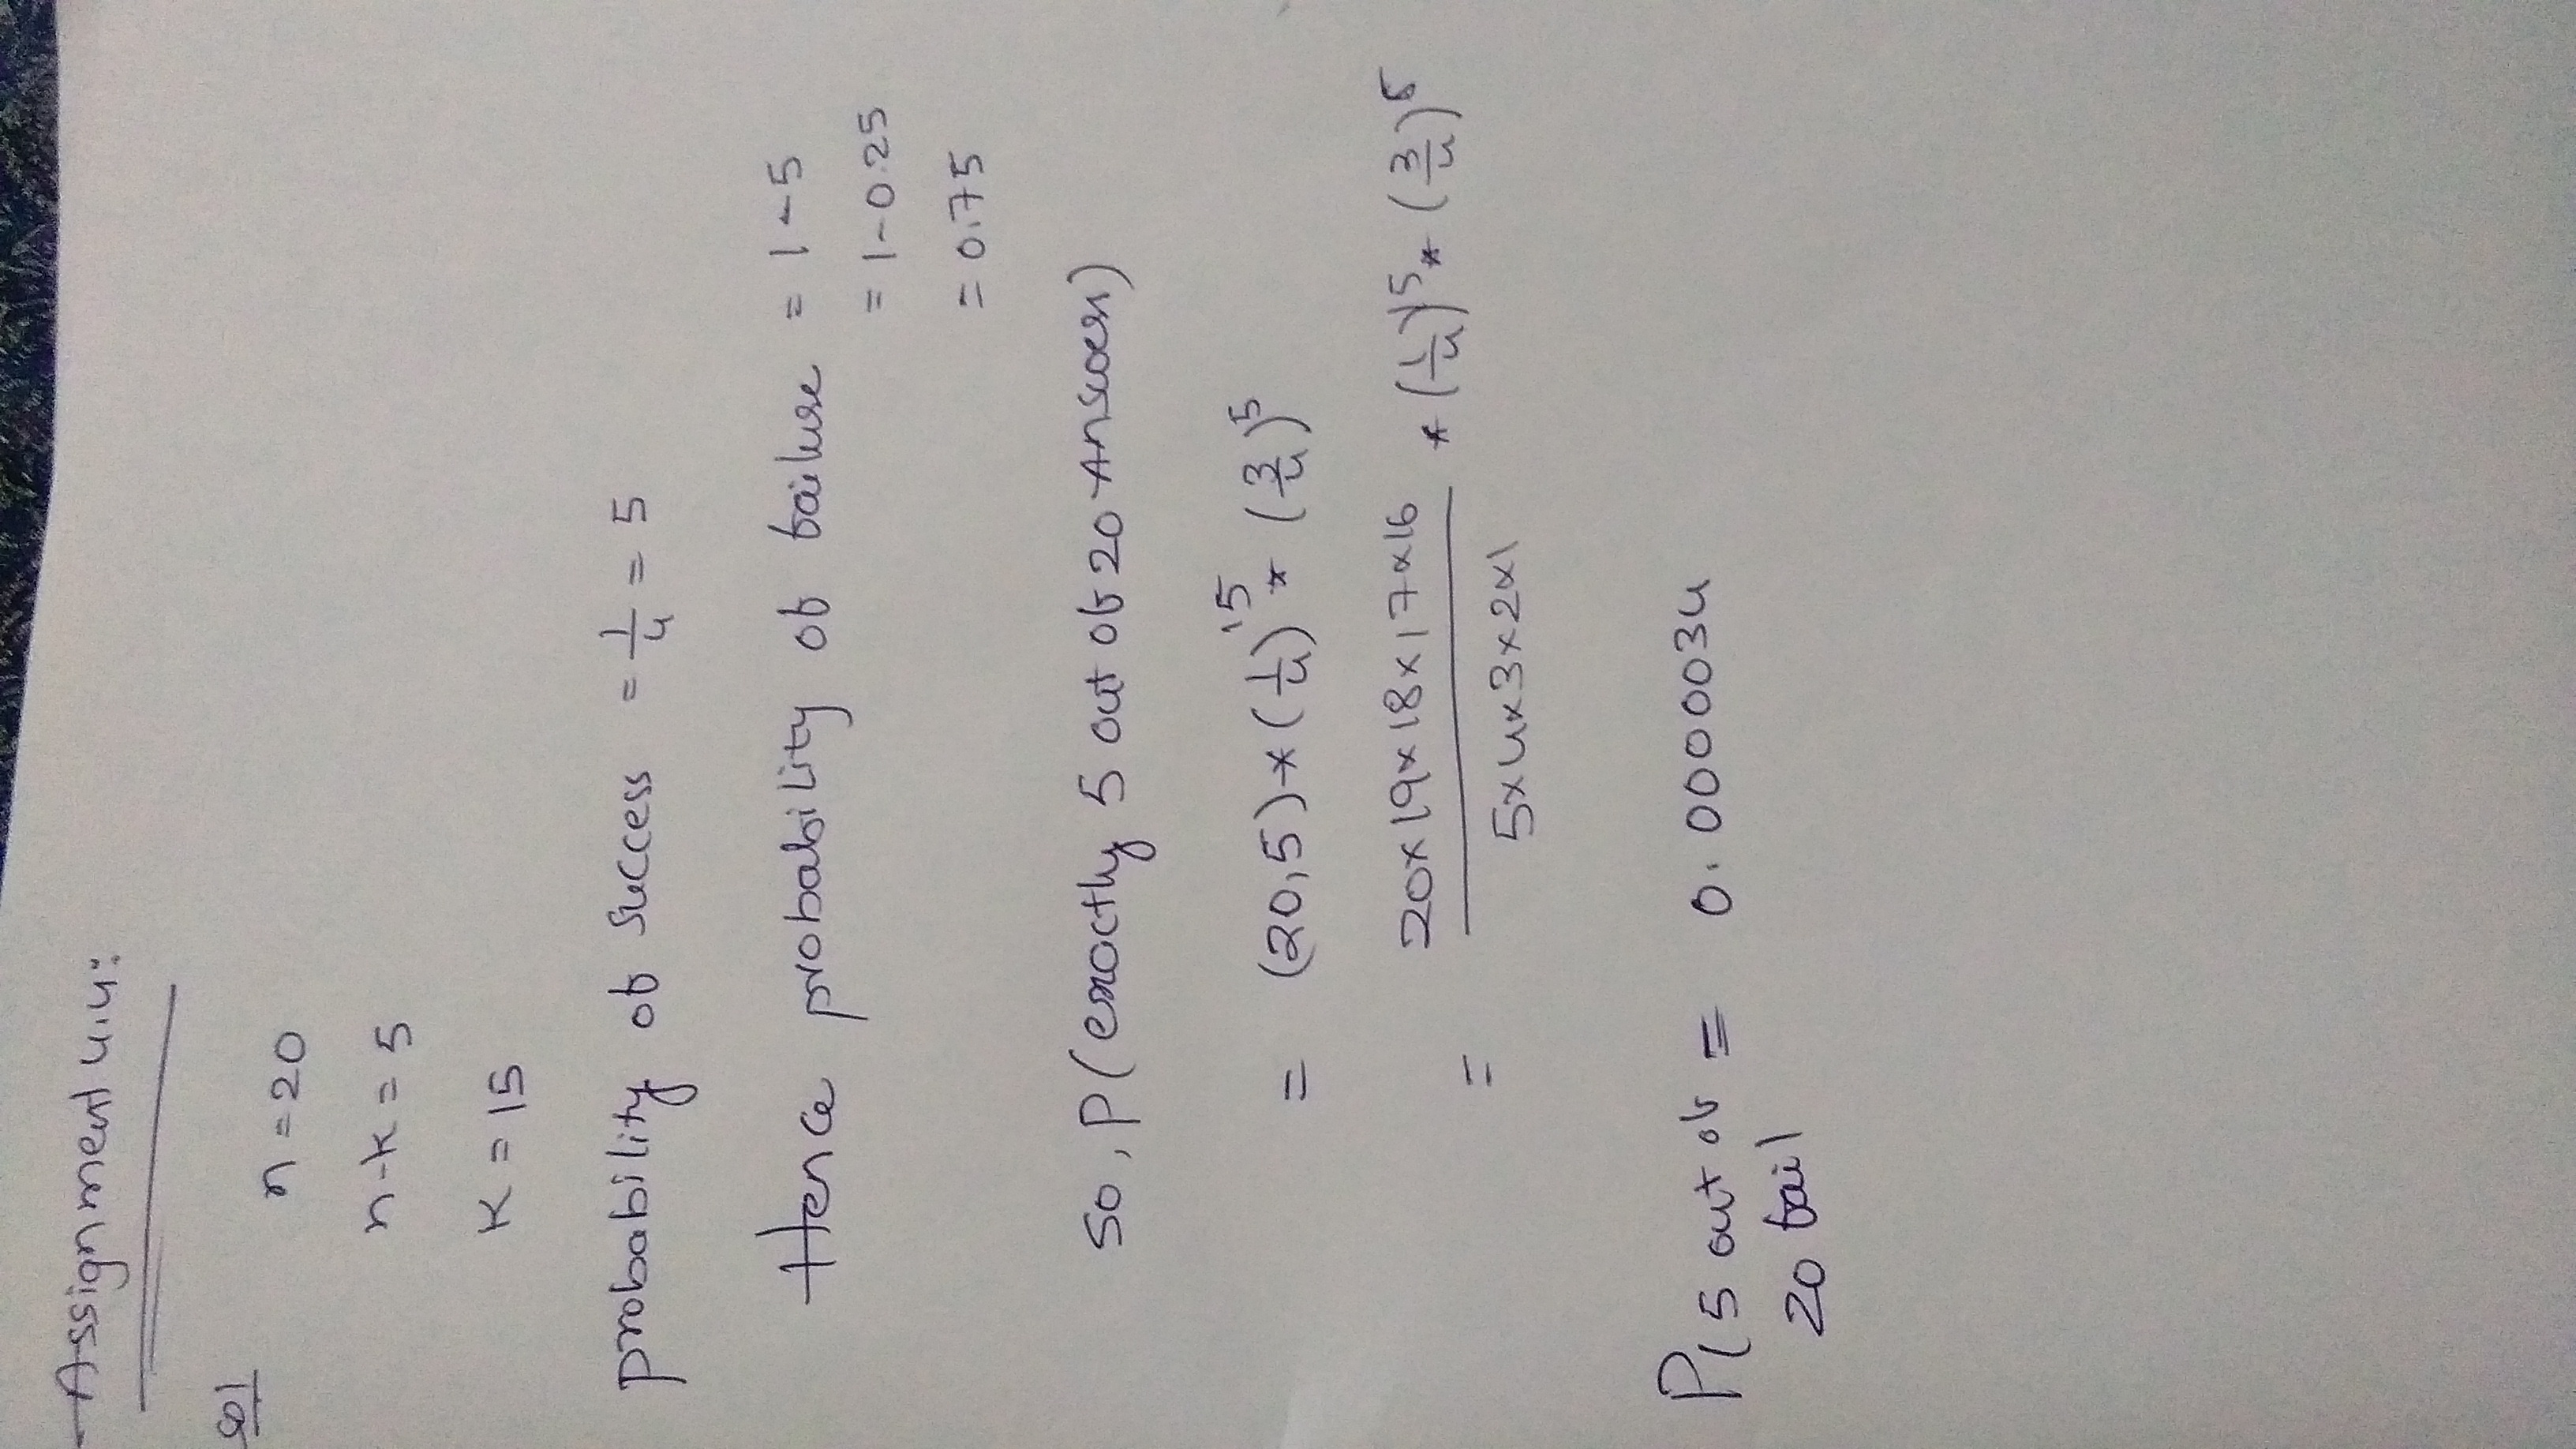 Assignment 4.4:
Q1
n = 20
n-k = 5
k = 15
probability of success = 1/4 = 5
Hence probability of failure = 1-5
= 1-0.25
= 0.75
so, P(exactly 5 out of 20 Answers)
= (20,5) * (1/4)^15 * (3/4)^5
= 20x19x18x17x16 / 5x4x3x2x1 * (1/4)^5 * (3/4)^5
P(5 out of = 0.0000034
20 fail